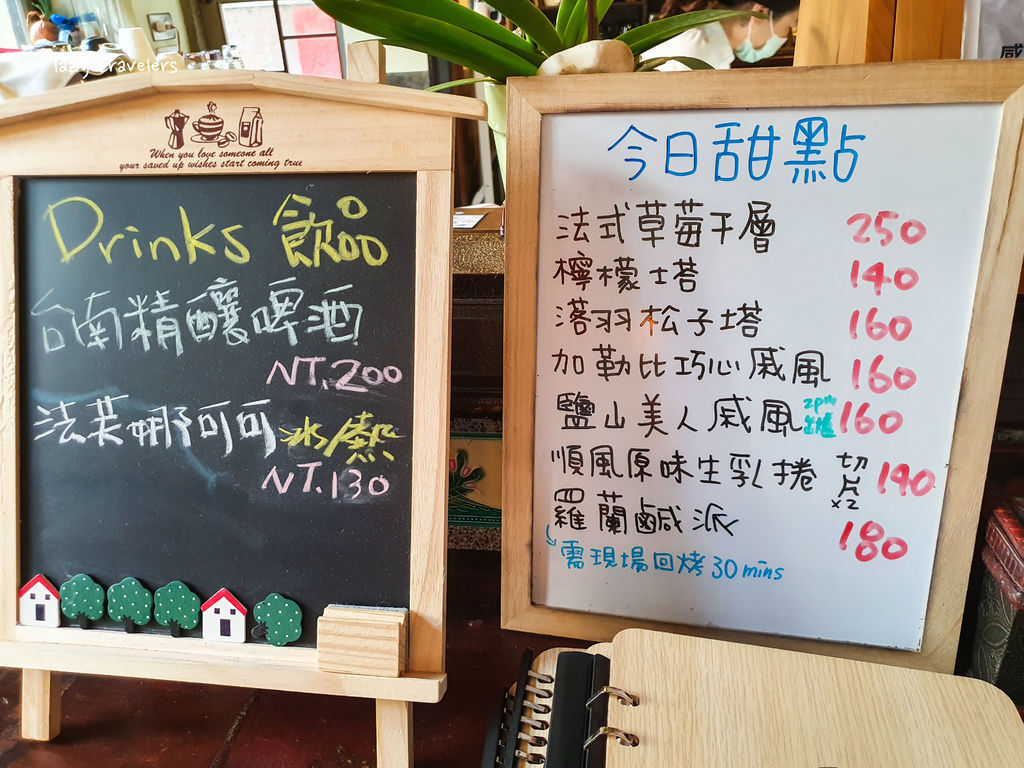 lazy travelers
When you love someone all
your saved up wishes start coming true
Drinks 飲品
台南精釀啤酒
NT.200
法芙娜可可 冰/熱
NT.130
今日甜點
法式草莓千層 250
檸檬塔 140
落羽松子塔 160
加勒比巧心戚風 160
鹽山美人戚風 2pm出爐 160
順風原味生乳捲 切片x2 140
羅蘭鹹派 180
需現場回烤30mins